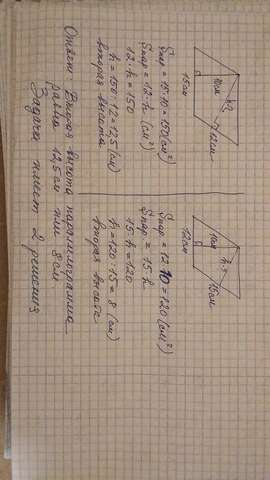 15см
10см
h-?
12см
Sпар = 15·10 = 150 (см²)
Sпар = 12·h (см²)
12·h = 150
h = 150:12 = 12,5 (см)
вторая высота
12см
10см
h-?
15см
Sпар = 12·10 = 120 (см²)
Sпар = 15·h
15·h = 120
h = 120:15 = 8 (см)
вторая высота
Ответ: Вторая высота параллелограмма
равна 12,5см или 8см
Задача имеет 2 решения